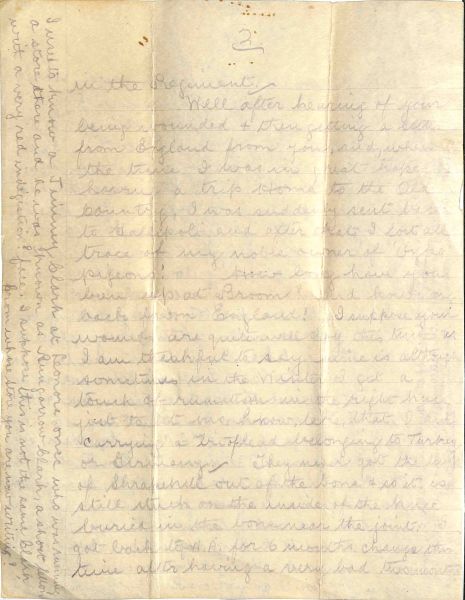 2
in the Regiment.
Well after hearing of your
being wounded & then getting a letter
from England from you, and, when
the time I was in great hopes
having a trip Home to the Old
Country, I was suddenly sent back
to Gallipoli and after that I lost all
trace of my noble owner of
pigeons! How long have you
been up at Broome and
back from England! I suppose your
wounds are quite well by this time as
I am thankful to say mine is although
sometimes in the Winter I get a
touch of rheumatism in the right knee
just to let me know, that I am
carrying a Trophy belonging to Turkey
or Germany. They never got the
of Shrapnel out of the bone & so it is
still stuck on the inside of the knee
buried in the bone near the joint. I
got back to W.A. for 6 months change this
time after having a very bad
I used to know a Jimmy Clark at once who was
a store there and he was known as Clark, a short fellow
with a very red indigestion face. I suppose this is not the same Clark
Broome where you are now writing?